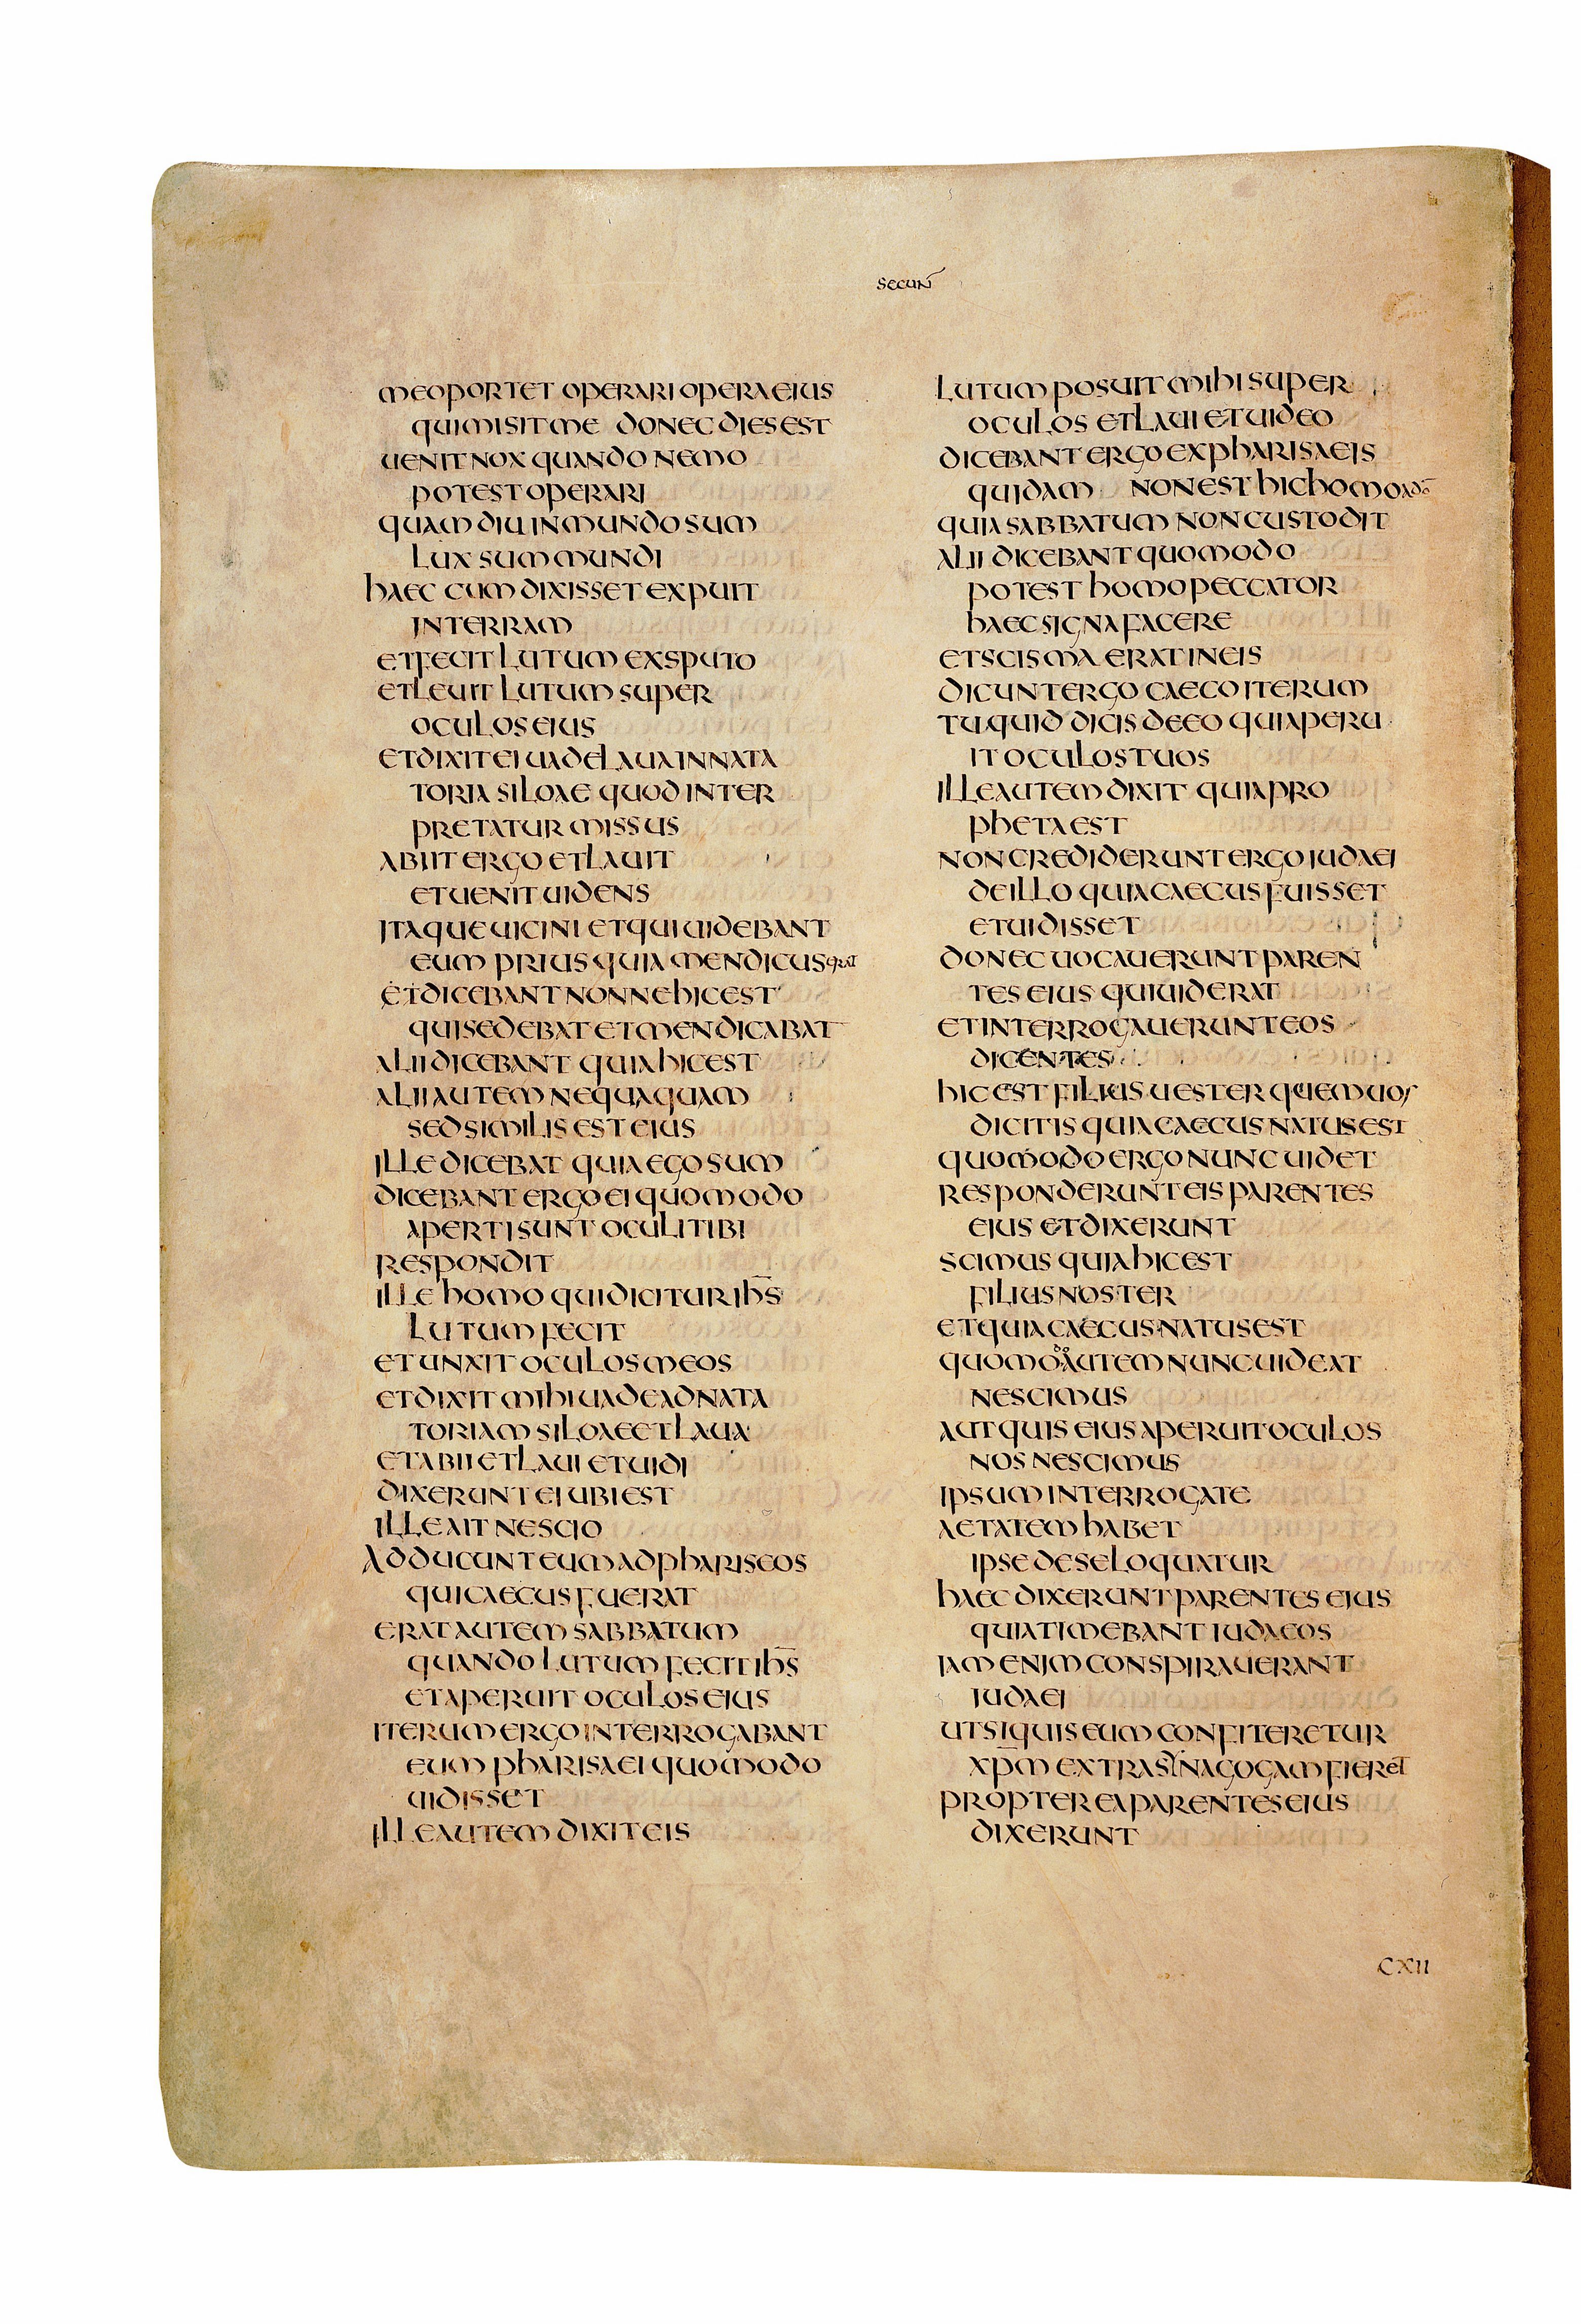 secuñ
me oportet operari opera eius
qui misit me donec dies est
uenit nox quando nemo
potest operari
quam diu in mundo sum
lux sum mundi
haec cum dixisset expuit
in terram
et fecit lutum ex sputo
et leuit lutum super
oculos eius
et dixit ei uade laua in nata
toria siloae quod inter
pretatur missus
abiit ergo et lauit
et uenit uidens
itaque uicini et qui uidebant
eum prius quia mendicus erat
et dicebant nonne hic est
qui sedebat et mendicabat
alii dicebant quia hic est
alii autem nequaquam
sed similis est eius
ille dicebat quia ego sum
dicebant ergo ei quomodo
aperti sunt oculi tibi
respondit
ille homo qui dicitur ih̅s
lutum fecit
et unxit oculos meos
et dixit mihi uade ad nata
toriam siloae et laua
et abii et laui et uidi
dixerunt ei ubi est
ille ait nescio
adducunt eum ad phariseos
qui caecus fuerat
erat autem sabbatum
quando lutum fecit ih̅s
et aperuit oculos eius
iterum ergo interrogabant
eum pharisaei quomodo
uidisset
ille autem dixit eis
lutum posuit mihi super
oculos et laui et uideo
dicebant ergo ex pharisaeis
quidam non est hic homo a do̅
quia sabbatum non custodit
alii dicebant quomodo
potest homo peccator
haec signa facere
et scisma erat in eis
dicunt ergo caeco iterum
tu quid dicis de eo qui aperu
it oculos tuos
ille autem dixit quia pro
pheta est
non crediderunt ergo iudaei
de illo quia caecus fuisset
et uidisset
donec uocauerunt paren
tes eius qui uiderat
et interrogauerunt eos
dicentes
hic est filius uester quem uos
dicitis quia caecus natus est
quomodo ergo nunc uidet
responderunt eis parentes
eius et dixerunt
scimus quia hic est
filius noster
et quia caecus natus est
quomodo autem nunc uideat
nescimus
aut quis eius aperuit oculos
nos nescimus
ipsum interrogate
aetatem habet
ipse de se loquatur
haec dixerunt parentes eius
quia timebant iudaeos
iam enim conspirauerant
iudaei
ut si quis eum confiteretur
xp̅m extra synagogam fieret
propterea parentes eius
dixerunt
CXII